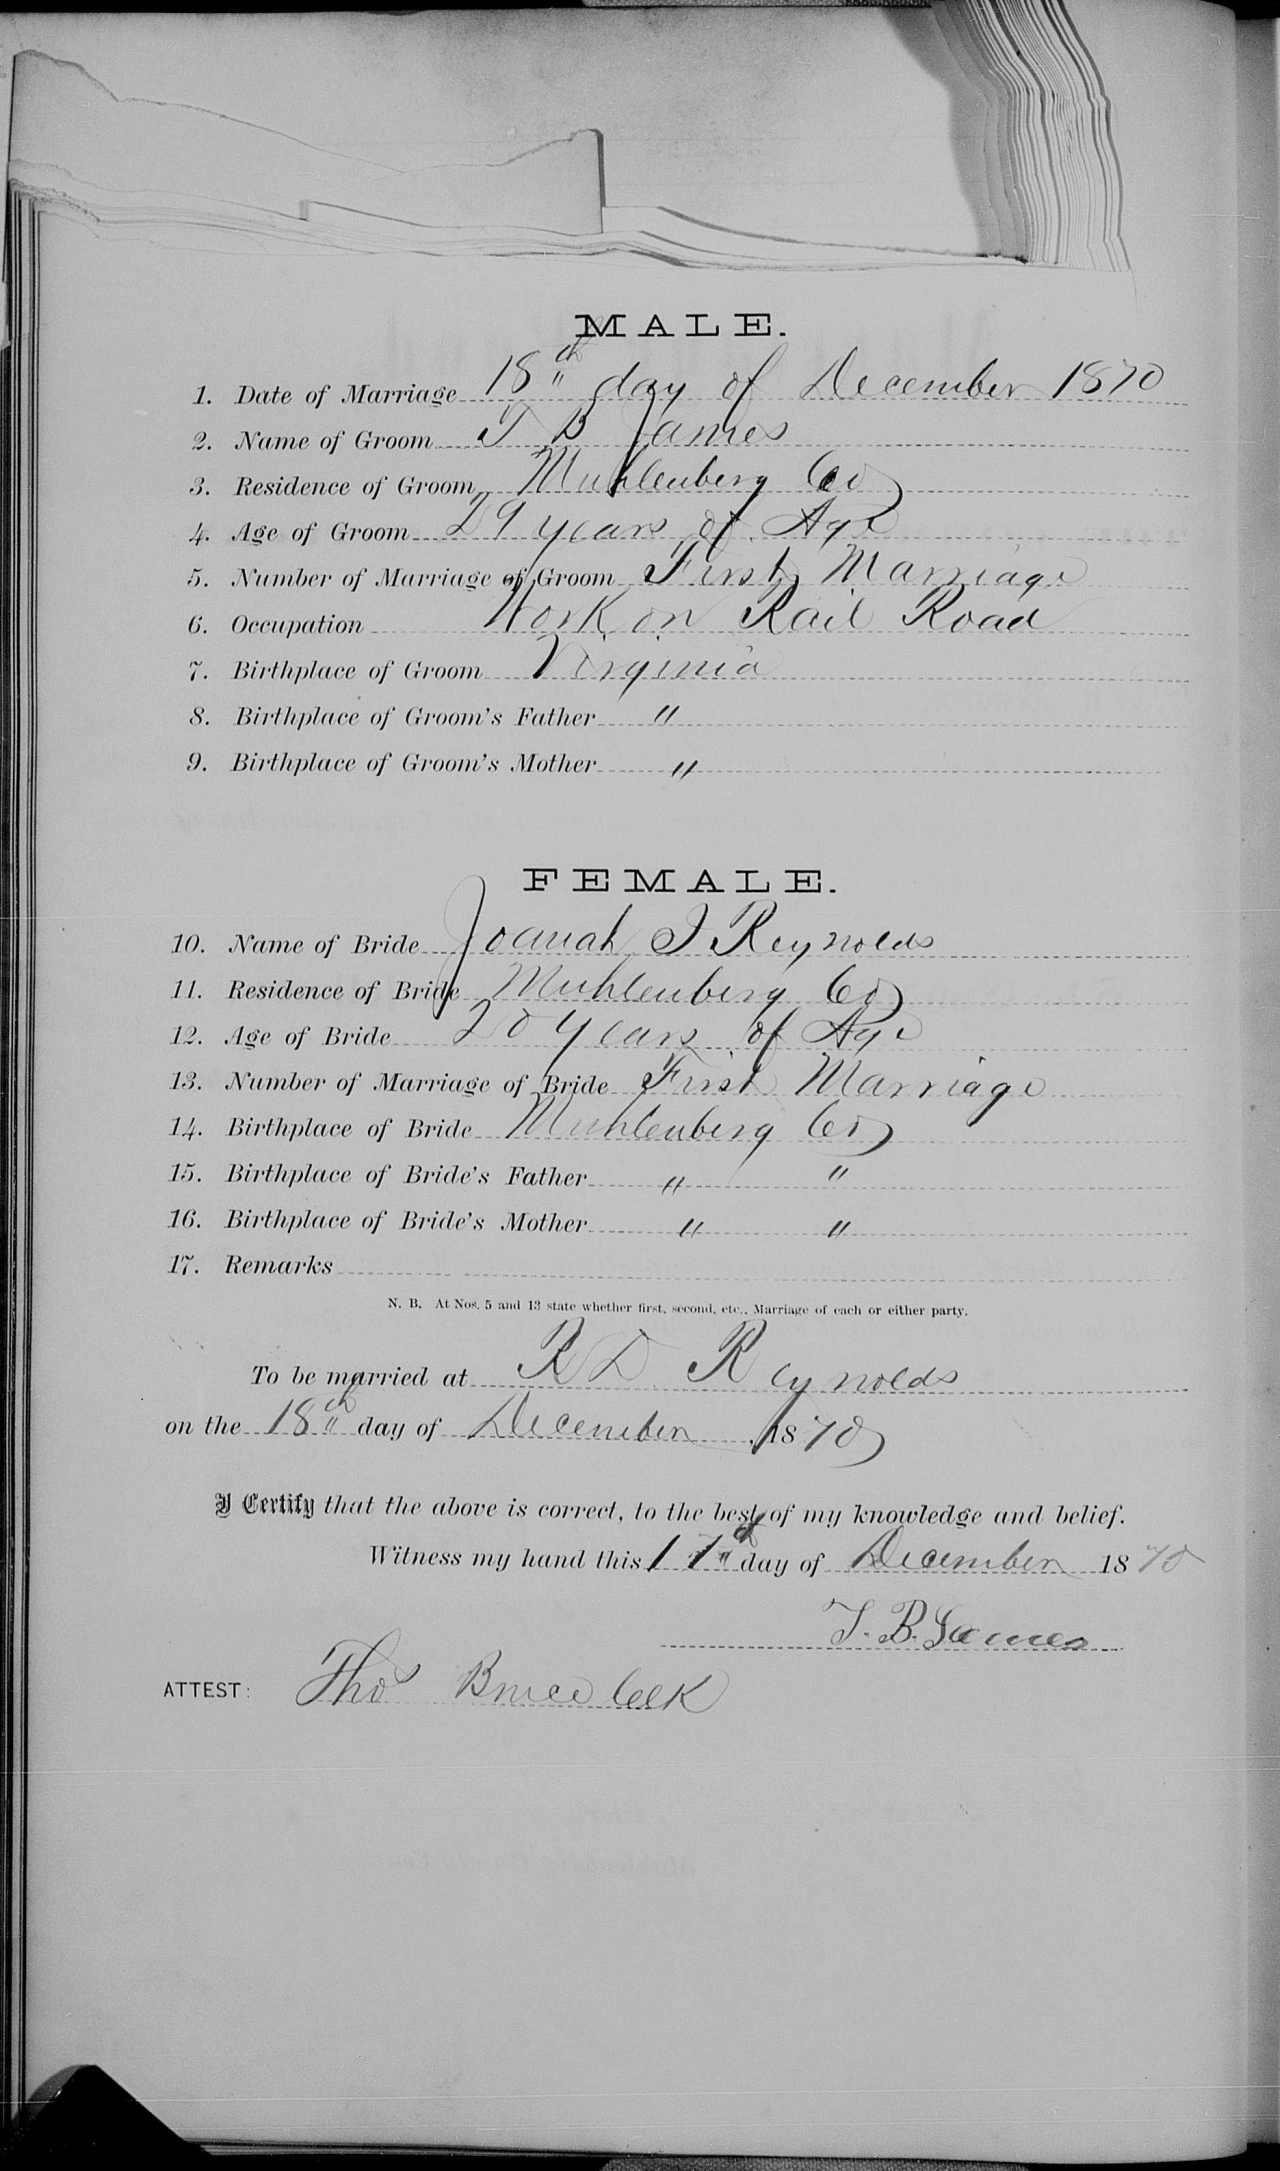 MALE.
1. Date of Marriage 18th day of December 1870
2. Name of Groom T B James
3. Residence of Groom Muhlenberg Co
4. Age of Groom 29 years of Age
5. Number of Marriage of Groom First Marriage
6. Occupation Work on Rail Road
7. Birthplace of Groom Virginia
8. Birthplace of Groom's Father "
9. Birthplace of Groom's Mother "
FEMALE.
10. Name of Bride Joanah I Reynolds
11. Residence of Bride Muhlenberg Co
12. Age of Bride 20 years of Age
13. Number of Marriage of Bride First Marriage
14. Birthplace of Bride Muhlenberg Co
15. Birthplace of Bride's Father " "
16. Birthplace of Bride's Mother " "
17. Remarks
N. B. At Nos. 5 and 13 state whether first, second, etc., Marriage of each or either party.
To be married at R D Reynolds
on the 18th day of December, 1870
I Certify that the above is correct, to the best of my knowledge and belief.
Witness my hand this 17th day of December 1870
T. B. James
ATTEST: Thos Bruce Clk